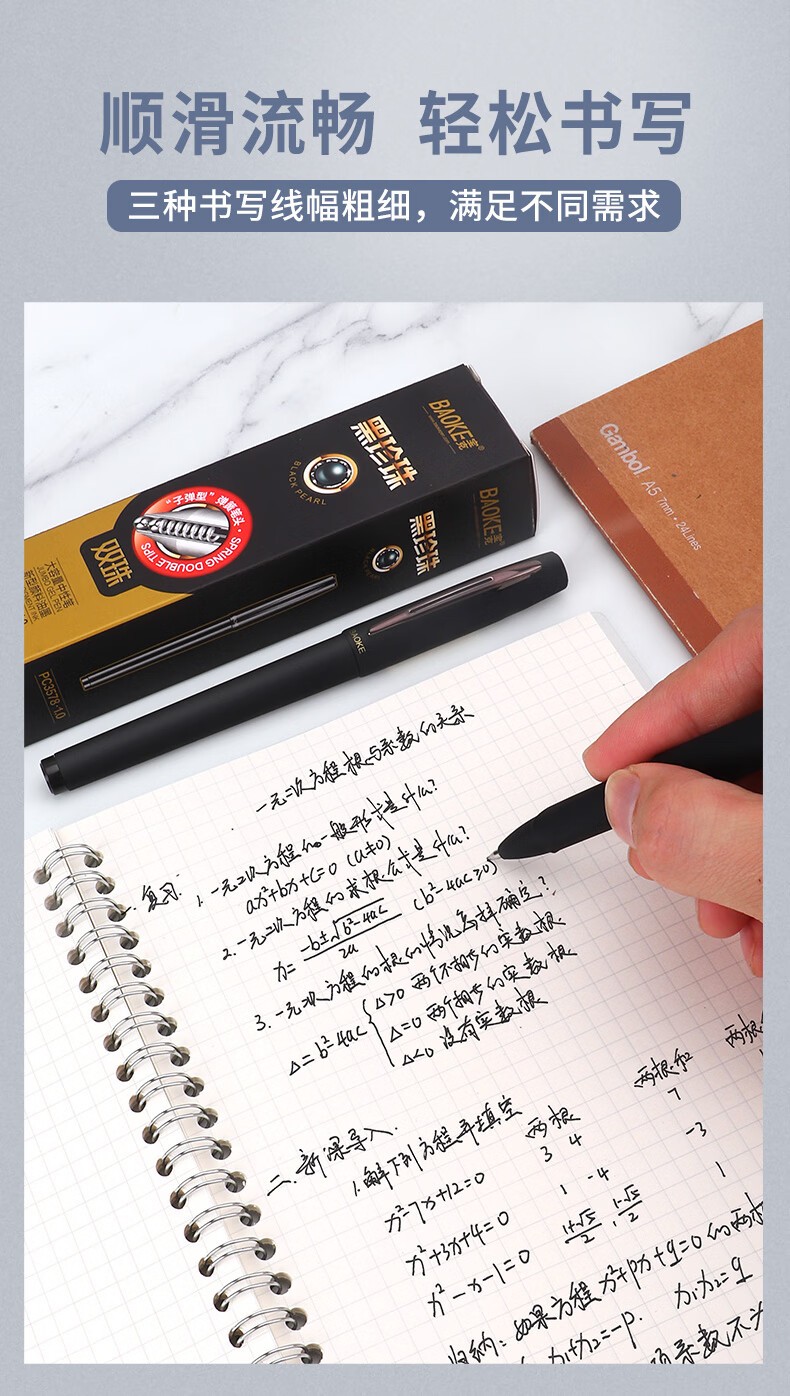 顺滑流畅 轻松书写
三种书写线幅粗细，满足不同需求
BAOKE宝克®
黑珍珠
BLACK PEARL
BAOKE宝克
黑珍珠
"子弹型"弹簧笔头·SPRING DOUBLE TIPS
双珠
大容量中性笔
JUMBO GEL PEN
PC3578-1.0
BAOKE
Gambol A5 7mm·24Lines
一元二次方程根与系数的关系
一、复习: 1. 一元二次方程的一般形式是什么?
ax²+bx+c=0 (a≠0)
2. 一元二次方程的求根公式是什么?
x= -b±√b²-4ac / 2a (b²-4ac≥0)
3. 一元二次方程的根的情况怎样确定?
△=b²-4ac { △>0 两个不相等的实数根
△=0 两个相等的实数根
△<0 没有实数根
二. 新课导入.
1.解下列方程并填空
两根 两根和 两根
x²-7x+12=0 3 4 7
x²+3x+4=0 1 -4 -3
x²-x-1=0 1+√5/2 , 1-√5/2 1
归纳: 如果方程x²+px+q=0的两根
x₁+x₂=-p. x₁x₂=q
项系数不为